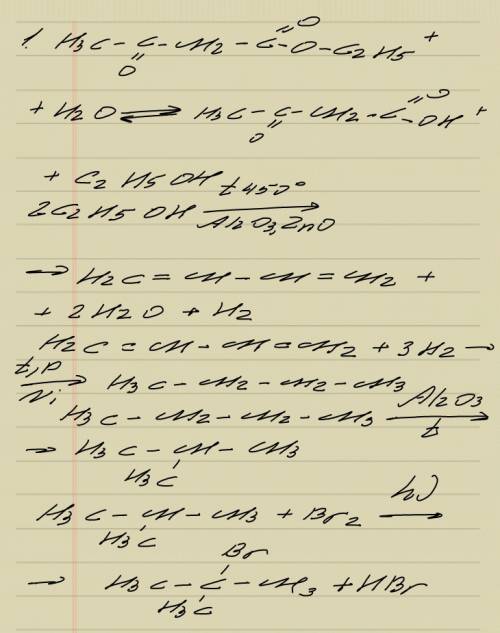 1. H3C - C - CH2 - C =O -O-C2H5 +
=O
+ H2O ⇌ H3C - C - CH2 - C =O -OH +
=O
+ C2H5OH
2C2H5OH t 450° Al2O3, ZnO →
→ H2C = CH - CH = CH2 +
+ 2H2O + H2
H2C = CH - CH = CH2 + 3H2 →
t, p Ni → H3C - CH2 - CH2 - CH3
H3C - CH2 - CH2 - CH3 Al2O3 t →
→ H3C - CH - CH3
H3C
H3C - CH - CH3 + Br2 hν →
H3C
Br
→ H3C - C - CH3 + HBr
H3C